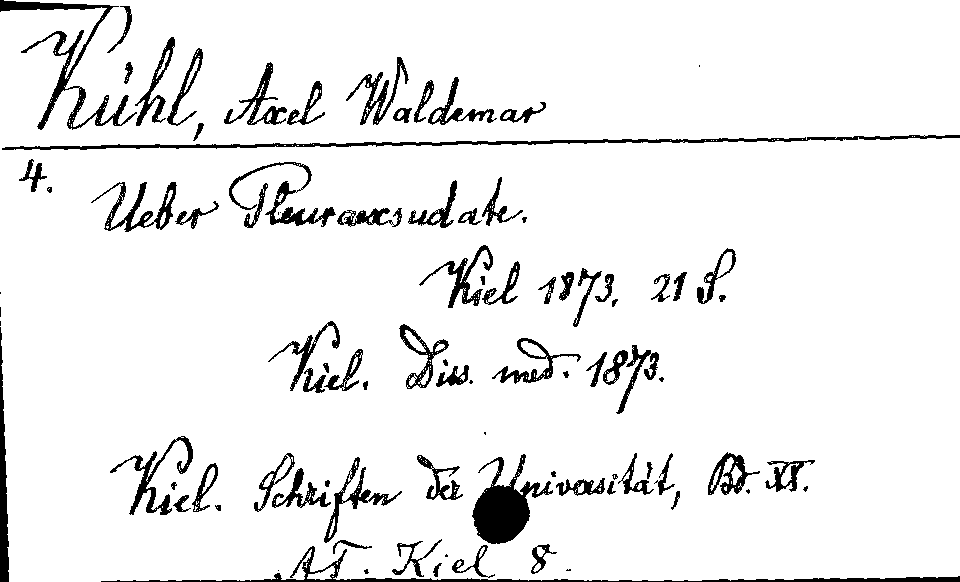 Kühl, Axel Waldemar
4.
Ueber Pleuraexsudate.
Kiel 1873. 21 S.
Kiel. Diss. med. 1873.
Kiel. Schriften der Universität, Bd. XX.
AT. Kiel 8.